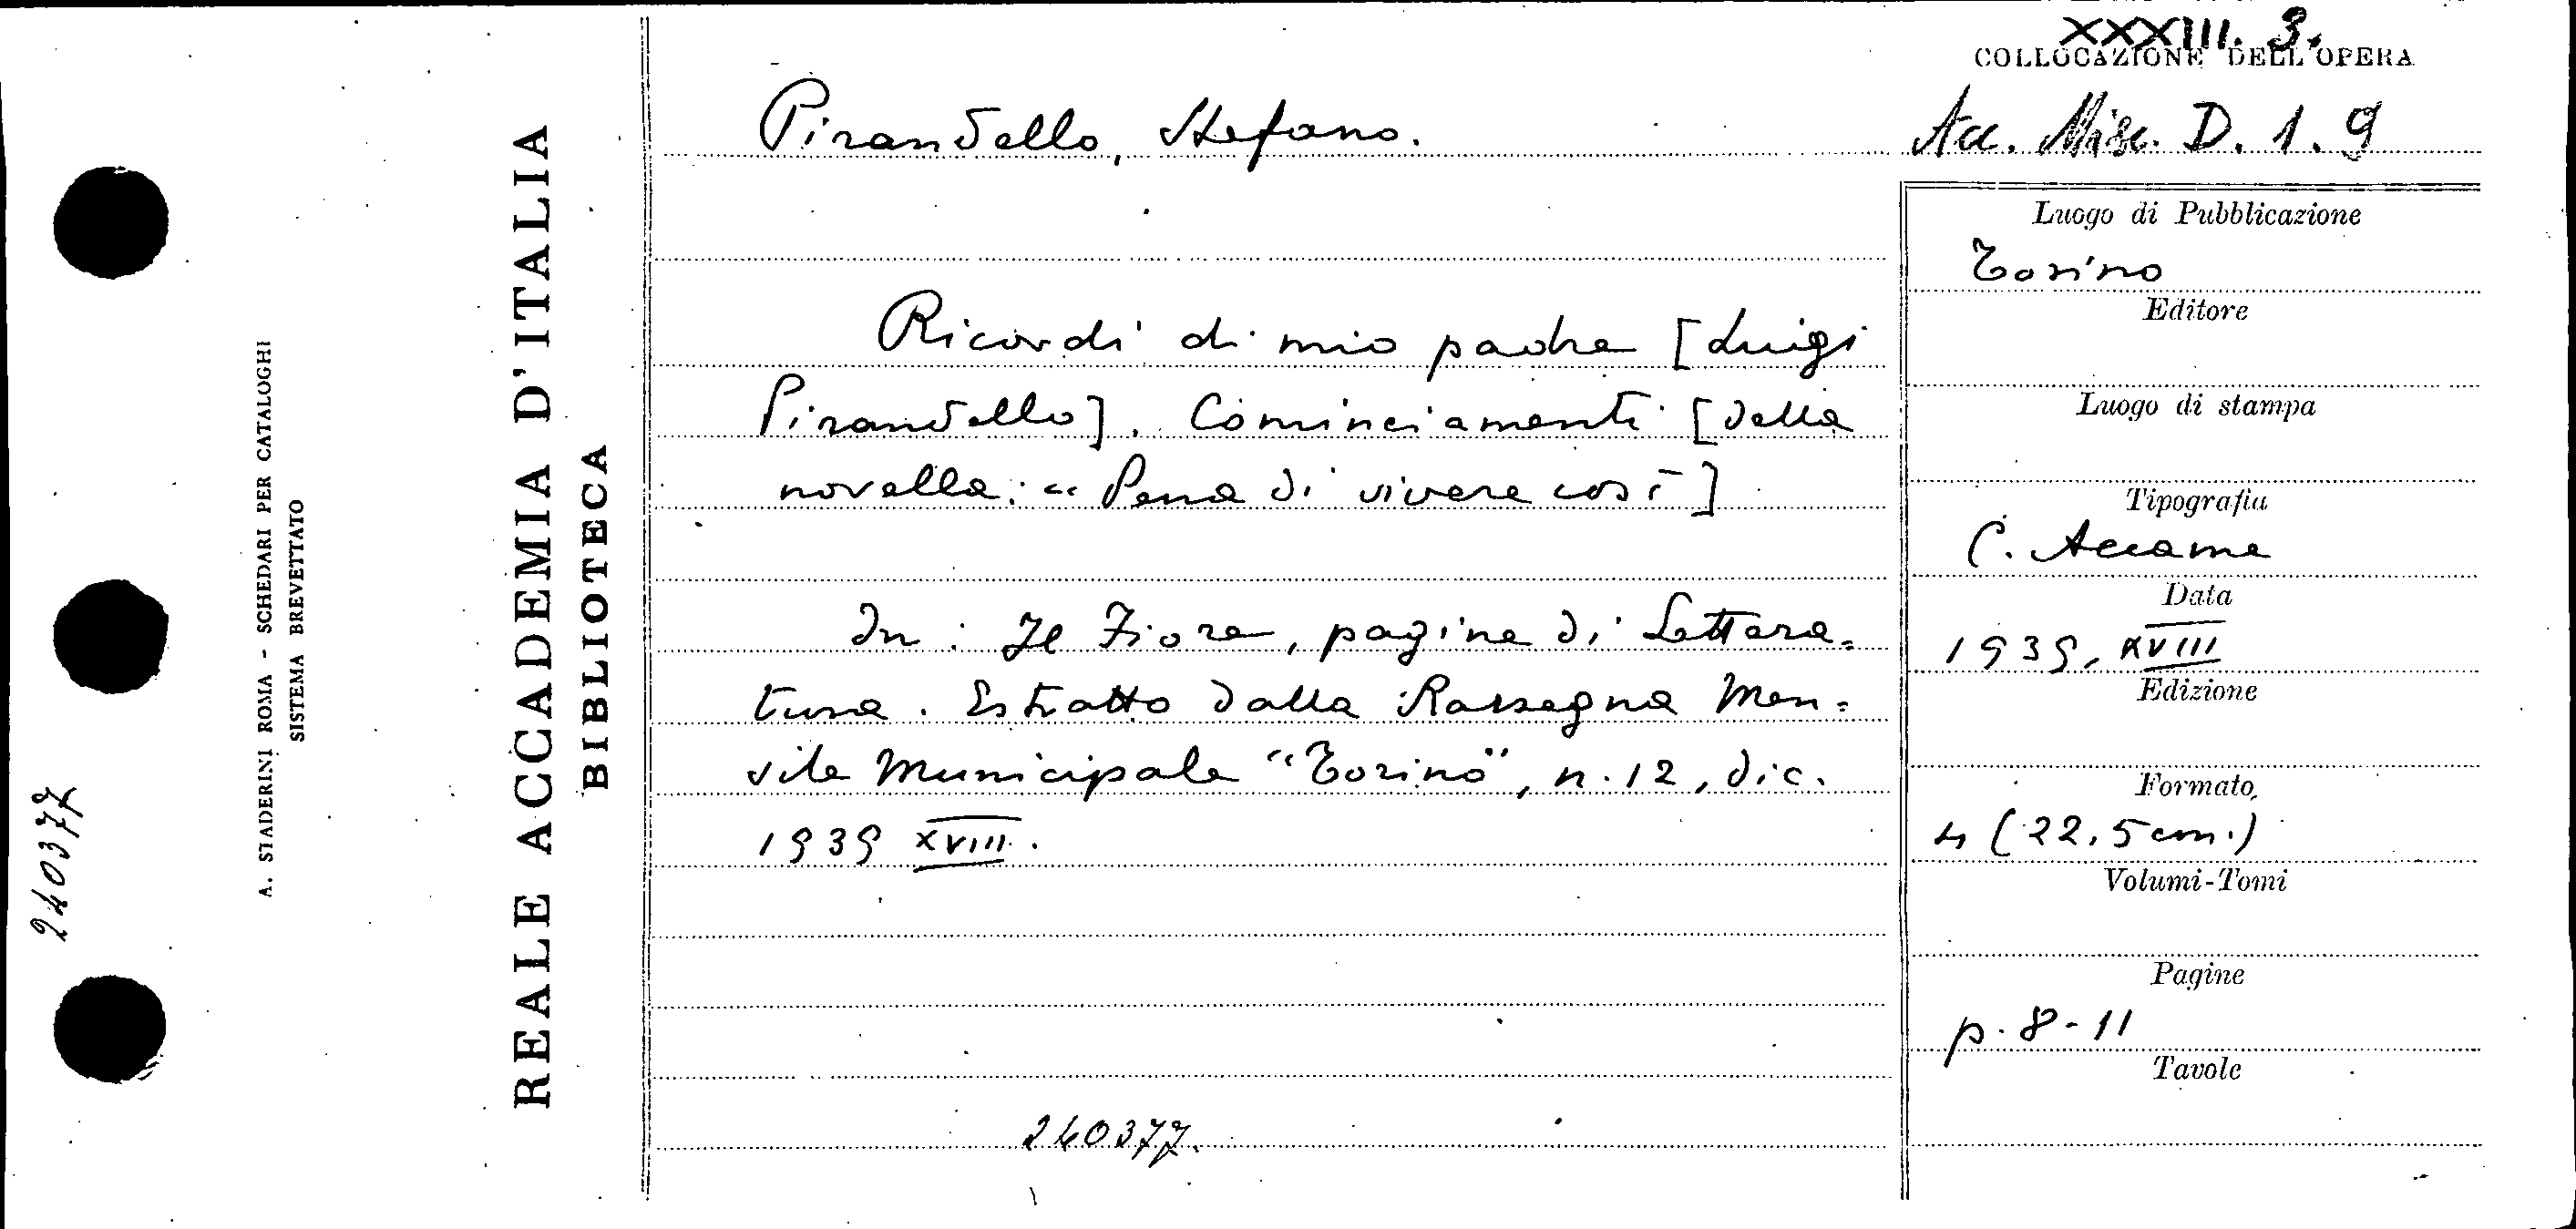 XXXIII. 3.
COLLOCAZIONE DELL'OPERA
Pirandello, Stefano.
Acc. Misc. D. 1. 9
Ricordi di mio padre [Luigi
Pirandello]. Cominciamenti [della
novella: “Pena di vivere così]
In: Il Fiore, pagine di Lettera=
tura. Estratto dalla Rassegna Men=
sile Municipale “Torino”, n. 12, dic.
1939 XVIII.
240377.
Luogo di Pubblicazione
Torino
Editore
Luogo di stampa
Tipografia
C. Accame
Data
1939, XVIII
Edizione
Formato
4 (22,5 cm.)
Volumi-Tomi
Pagine
p. 8-11
Tavole
REALE ACCADEMIA D'ITALIA
BIBLIOTECA
A. STADERINI ROMA - SCHEDARI PER CATALOGHI
SISTEMA BREVETTATO
240377